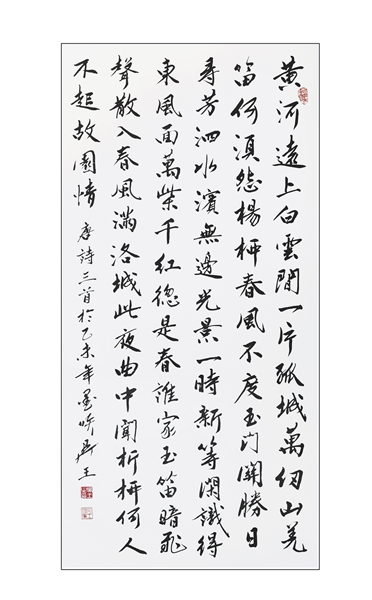 黄河遠上白雲間一片孤城萬仞山羌
笛何須怨楊柳春風不度玉门開勝日
尋芳泗水濱無邊光景一時新等閑識得
東風面萬紫千紅總是春誰家玉笛暗飛
聲散入春風滿洛城此夜曲中聞折柳何人
不起故園情 唐詩三首於乙未年墨吟王